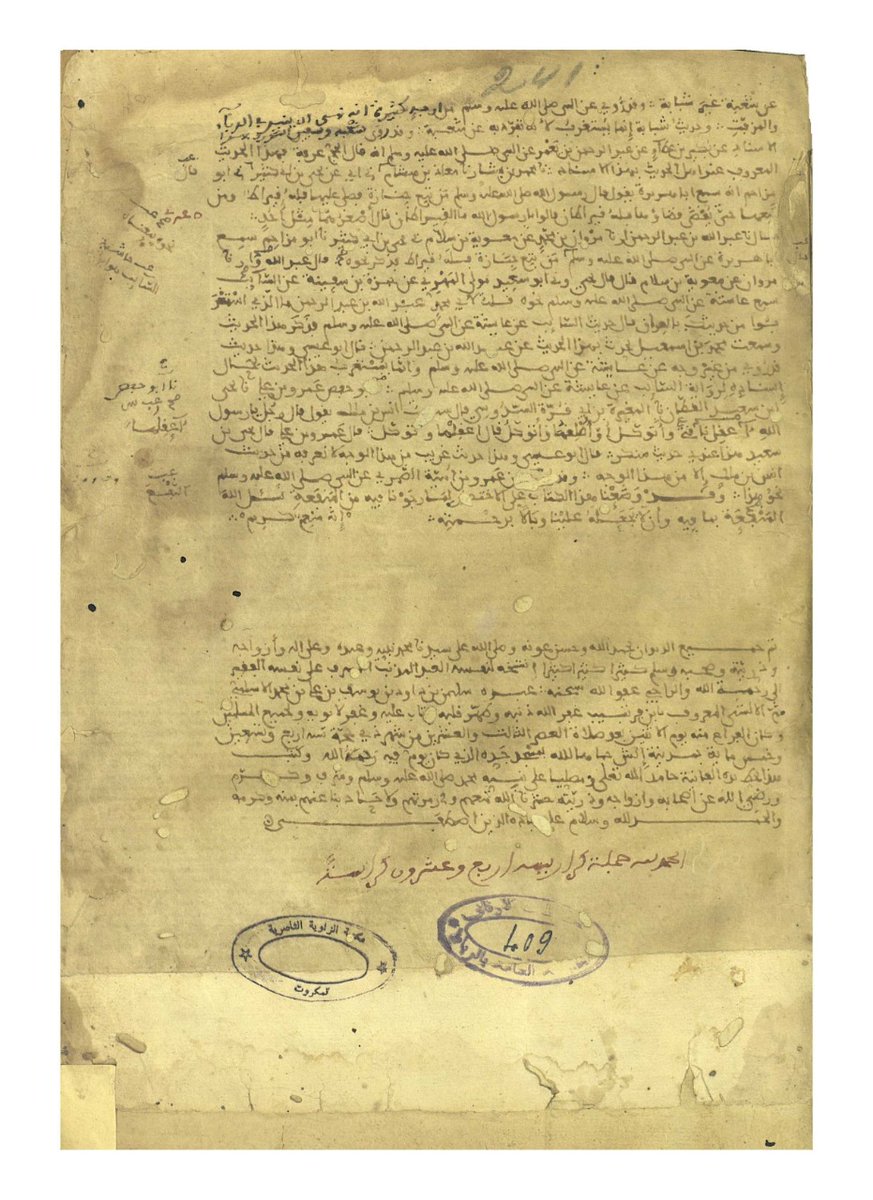 241
عن شعبة غير شبابة وقد روي عن النبي صلى الله عليه وسلم من اوجه كثيرة انه نهى ان ينتبذ في الدباء
والمزفت وحديث شبابة انما يستغرب لانه تفرد به عن شعبة وقد روى شعبة وسفين الثوري بهذا
الاسناد عن بكير بن عطاء عن عبد الرحمن بن يعمر عن النبي صلى الله عليه وسلم انه قال الحج عرفة فهذا الحديث
المعروف عند اهل الحديث بهذا الاسناد محمد بن بشار نا معاذ بن هشام ني ابي عن يحيى بن ابي كثير ني ابو
مزاحم انه سمع ابا هريرة يقول قال رسول الله صلى الله عليه وسلم من تبع جنازة فصلى عليها فله قيراط ومن
تبعها حتى يقضى قضاؤها فله قيراطان قالوا يا رسول الله ما القيراطان قال اصغرهما مثل احد
نا عبد الله بن عبد الرحمن انا مروان بن محمد عن معوية بن سلام ني يحيى بن ابي كثير نا ابو مزاحم سمع
ابا هريرة عن النبي صلى الله عليه وسلم من تبع جنازة فله قيراط فذكر نحوه قال عبد الله وانا
مروان عن معوية بن سلام قال قال يحيى وني ابو سعيد مولى المهري عن حمزة بن سفينة عن السائب
سمع عائشة عن النبي صلى الله عليه وسلم نحوه قلت لابي محمد عبد الله بن عبد الرحمن ما الذي استغر
بوا من حديثك بالعراق قال حديث السائب عن عائشة عن النبي صلى الله عليه وسلم فذكر هذا الحديث
وسمعت محمد بن اسمعيل يحدث بهذا الحديث عن عبد الله بن عبد الرحمن قال ابو عيسى وهذا حديث
قد روي من غير وجه عن عائشة عن النبي صلى الله عليه وسلم وانما يستغرب هذا الحديث لحال
اسناده لرواية السائب عن عائشة عن النبي صلى الله عليه وسلم ابو حفص عمرو بن علي نا يحيى
ابن سعيد القطان نا المغيرة بن ابي قرة السدوسي قال سمعت انس بن ملك يقول قال رجل يا رسول
الله اعقل ناقتي واتوكل او اطلقها واتوكل قال اعقلها وتوكل قال عمرو بن علي قال يحيى بن
سعيد هذا عندي حديث منكر قال ابو عيسى وهذا حديث غريب من هذا الوجه لا نعرفه من حديث
انس بن ملك الا من هذا الوجه وقد روي عن عمرو بن امية الضمري عن النبي صلى الله عليه وسلم
نحو هذا وقد وضعنا هذا الكتاب على الاختصار لما رجونا فيه من المنفعة نسئل الله
المنفعة بما فيه وان لا يجعله علينا وبالا برحمته انه منعم كريم
تم جميع الديوان بحمد الله وحسن عونه وصلى الله على سيدنا محمد نبيه وعبده وعلى اله وازواجه
وذريته وصحبه وسلم كثيرا كثيرا كثيرا انتسخه لنفسه العبد المذنب المسرف على نفسه الفقير
الى رحمة الله والراجي عفو الله عبده سليمن بن داود بن يوسف بن علي بن محمد الاسلمي
المعروف غفر الله ذنبه وطهر قلبه وتاب عليه وغفر لابويه ولجميع المسلمين
وكان الفراغ منه يوم الاثنين بعد صلاة العصر الثالث والعشرين من شهر ذي حجة سنة اربع وتسعين
وخمس مائة بمدينة حماها الله بمسجد جده الذي كان يؤم فيه رحمه الله وكتب
حامدا لله تعلى ومصليا على نبيه محمد صلى الله عليه وسلم وشرف وكرم
ورضي الله عن اصحابه وازواجه وذريته
والحمد لله وسلام على عباده الذين اصطفى
الحمد لله جملة كراريسه اربع وعشرون كراسة
مكتبة الزاوية الناصرية
تمكروت
الاوقاف
409
العامة بالرباط